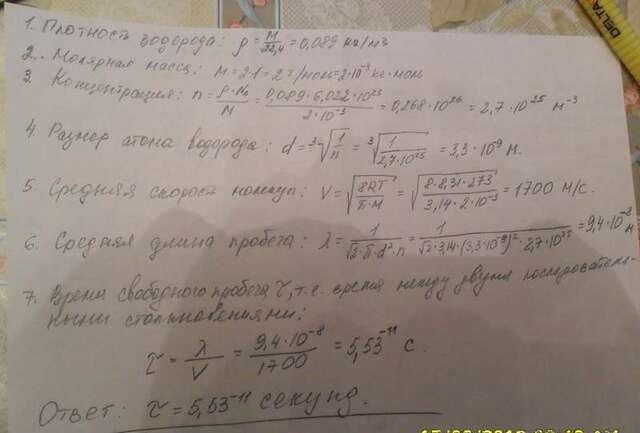 1. Плотность водорода: ρ = M/22,4 = 0,089 кг/м3
2. Молярная масса: M = 2·1 = 2 г/моль = 2·10⁻³ кг·моль
3. Концентрация: n = ρ·N₀/M = 0,089·6,022·10²³/2·10⁻³ = 0,268·10²⁶ = 2,7·10²⁵ м⁻³
4. Размер атома водорода: d = ³√1/n = ³√1/2,7·10²⁵ = 3,3·10⁹ м.
5. Средняя скорост молекул: V = √8RT/π·M = √8·8,31·273/3,14·2·10⁻³ = 1700 м/с.
6. Средняя длина пробега: λ = 1/√2·π·d²·n = 1/√2·3,14·(3,3·10⁻⁹)²·2,7·10²⁵ = 9,4·10⁻⁸ м
7. Время свободного пробега τ, т.е. время между двумя последователь-
ными столкновениями:
τ = λ/V = 9,4·10⁻⁸/1700 = 5,53⁻¹¹ с.
Ответ: τ = 5,53⁻¹¹ секунд.
DELTA